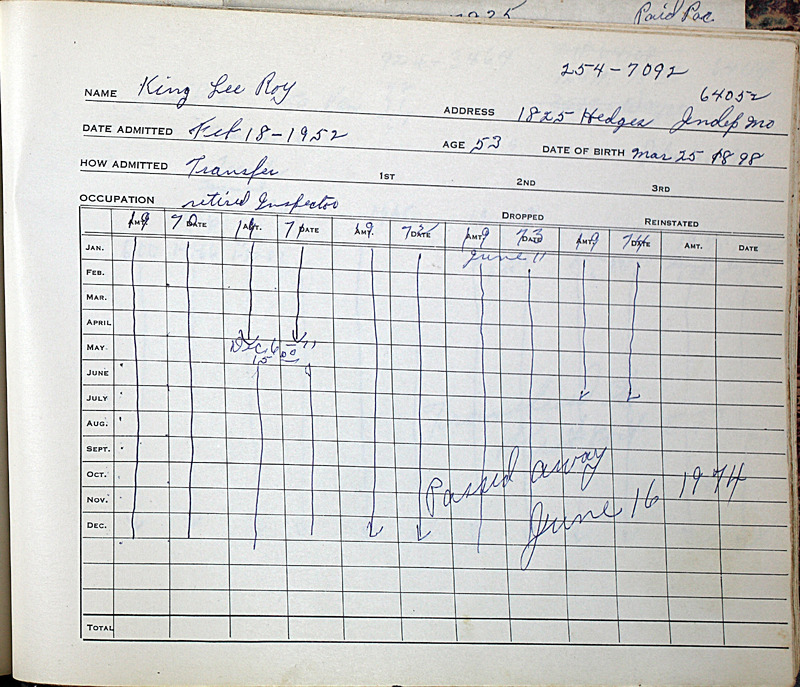 Paid Dec
254-7092
64052
NAME King Lee Roy
ADDRESS 1825 Hedges Indep Mo
DATE ADMITTED Feb 18-1952
AGE 53 DATE OF BIRTH Mar 25 1898
HOW ADMITTED Transfer 1ST 2ND 3RD
OCCUPATION retired Inspector
DROPPED REINSTATED
19 AMT. 70 DATE 19 AMT. 71 DATE 19 AMT. 72 DATE 19 AMT. 73 DATE 19 AMT. 74 DATE AMT. DATE
JAN. June 11
FEB.
MAR.
APRIL
MAY Dec 6 71
15 00
JUNE
JULY
AUG.
SEPT.
OCT. Passed away
NOV. June 16 1974
DEC.
TOTAL